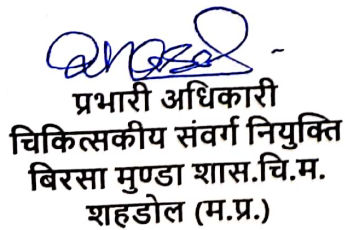 प्रभारी अधिकारी
चिकित्सकीय संवर्ग नियुक्ति
बिरसा मुण्डा शास.चि.म.
शहडोल (म.प्र.)